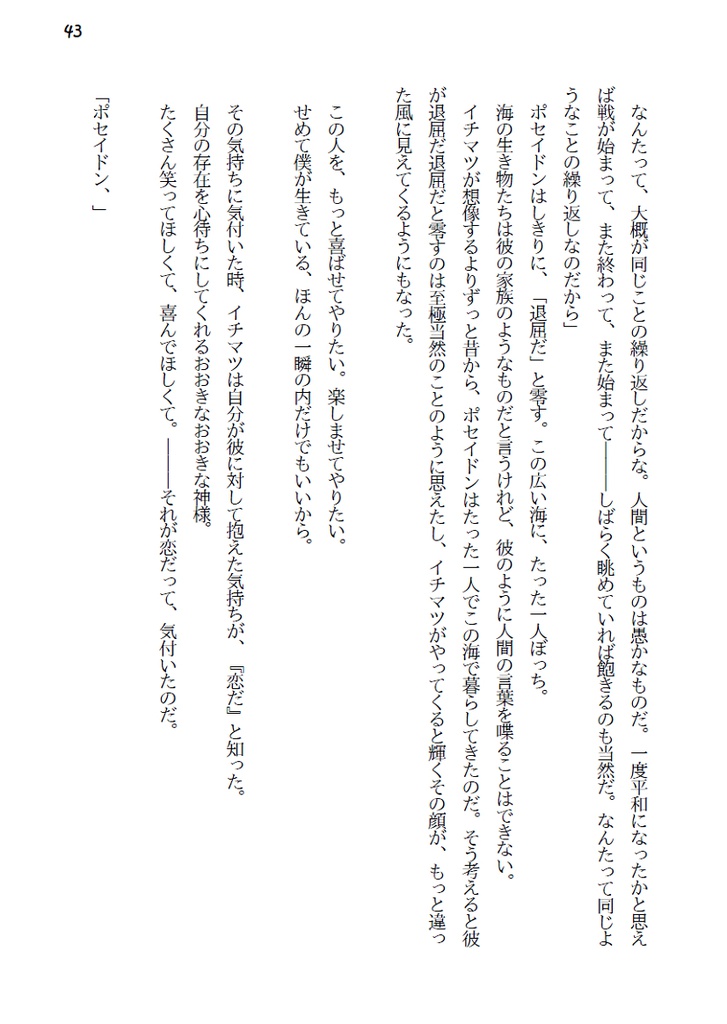 43
なんたって、大概が同じことの繰り返しだからな。人間というものは愚かなものだ。一度平和になったかと思え
ば戦が始まって、また終わって、また始まって―――しばらく眺めていれば飽きるのも当然だ。なんたって同じよ
うなことの繰り返しなのだから」
ポセイドンはしきりに、「退屈だ」と零す。この広い海に、たった一人ぼっち。
海の生き物たちは彼の家族のようなものだと言うけれど、彼のように人間の言葉を喋ることはできない。
イチマツが想像するよりずっと昔から、ポセイドンはたった一人でこの海で暮らしてきたのだ。そう考えると彼
が退屈だ退屈だと零すのは至極当然のことのように思えたし、イチマツがやってくると輝くその顔が、もっと違っ
た風に見えてくるようにもなった。
この人を、もっと喜ばせてやりたい。楽しませてやりたい。
せめて僕が生きている、ほんの一瞬の内だけでもいいから。
その気持ちに気付いた時、イチマツは自分が彼に対して抱えた気持ちが、『恋だ』と知った。
自分の存在を心待ちにしてくれるおおきなおおきな神様。
たくさん笑ってほしくて、喜んでほしくて。―――それが恋だって、気付いたのだ。
「ポセイドン、」